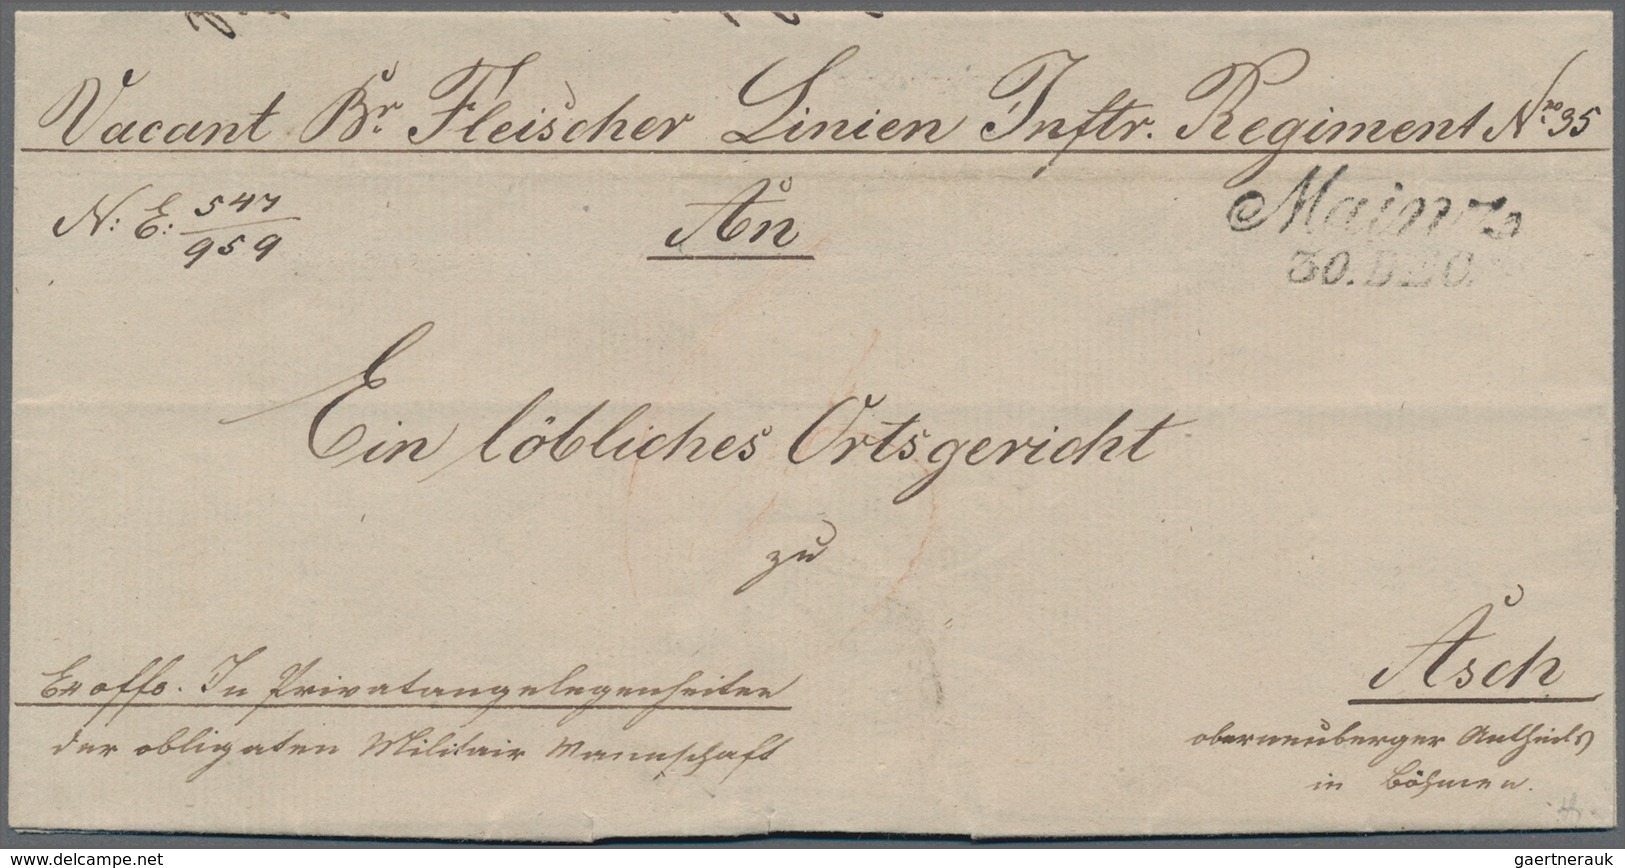 Vacant Br. Fleischer Linien Inftr. Regiment Nro. 35
N: E: 547/959
An
Mainz
30. DEC.
Ein löbliches Ortsgericht
zu
Asch
Ex offo. In Privatangelegenheiten
der obligaten Militair Mannschaft
oberneuberger Antheils
in Böhmen.
www.delcampe.net
gaertnerauk